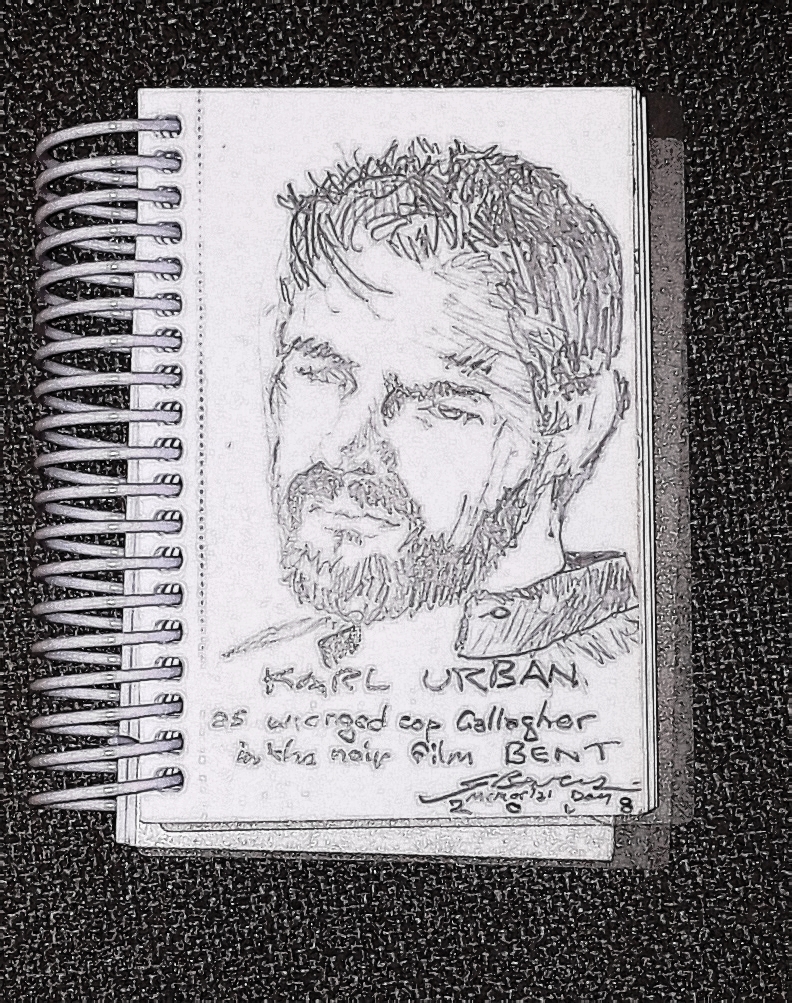 KARL URBAN
as wronged cop Gallagher
in the noir film BENT
Memorial Day
2 0 1 8